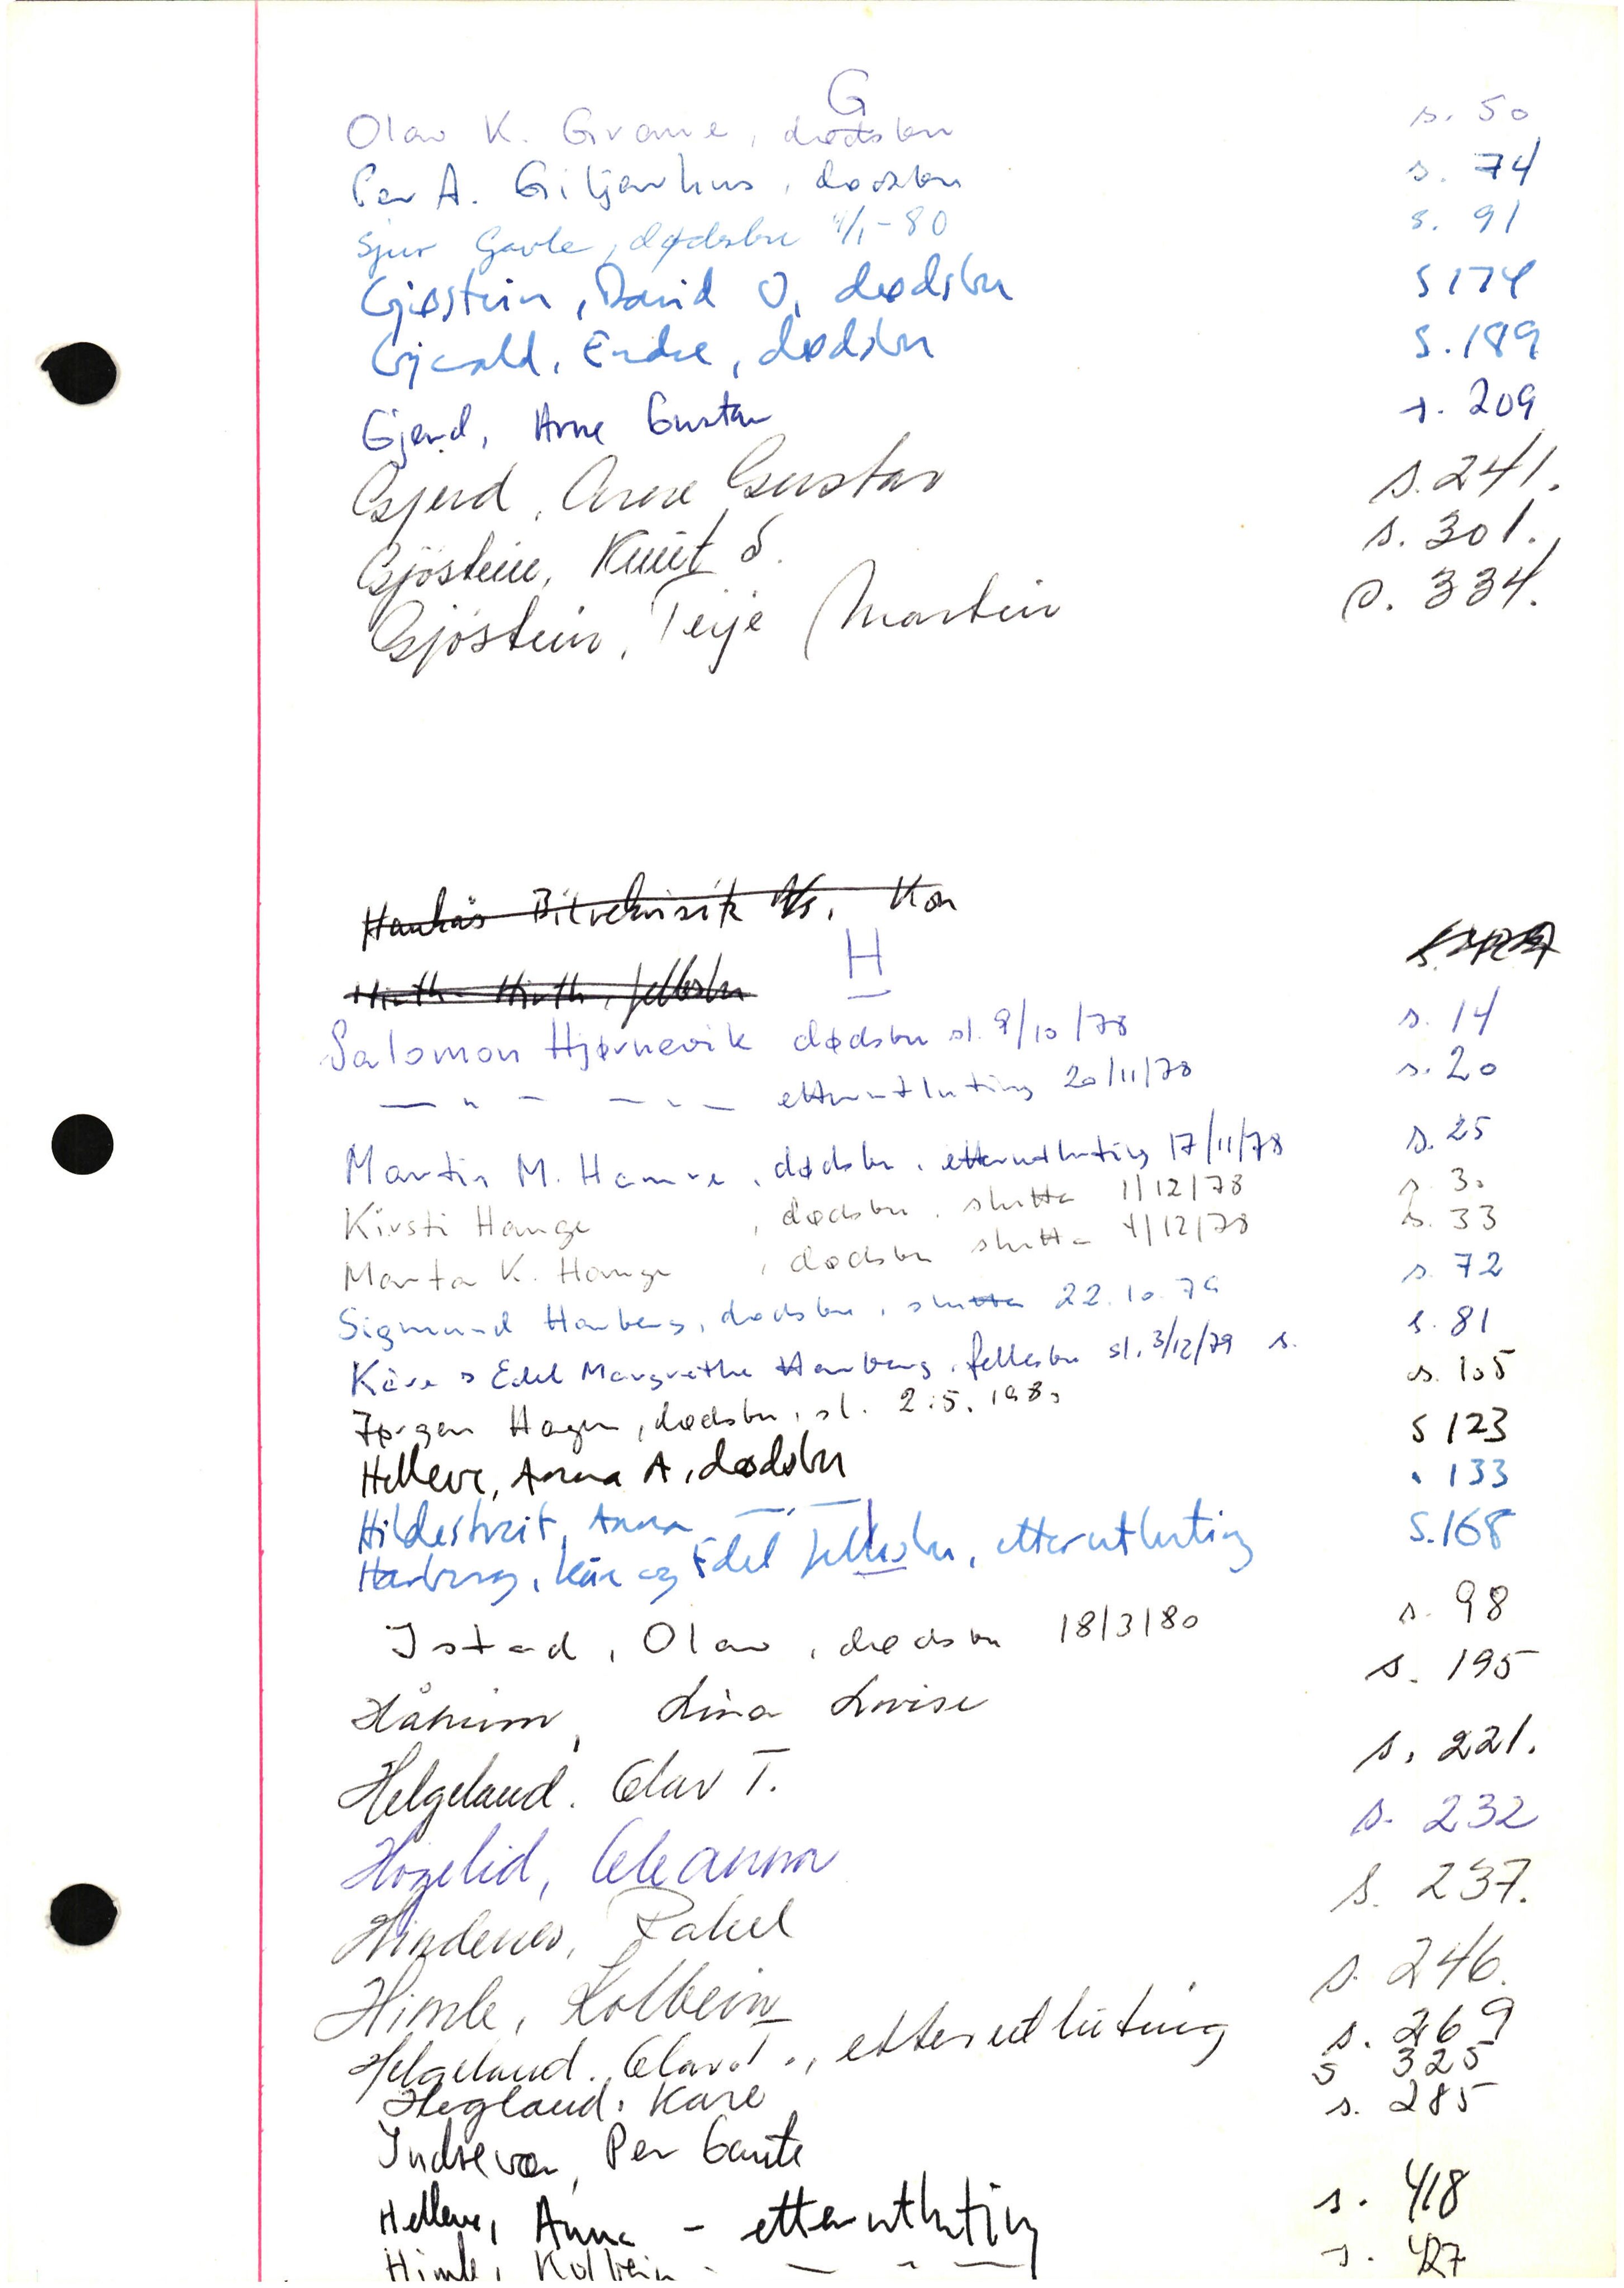 G
Olav K. Grove, dødsbu s. 50
Per A. Giljarhus, dødsbu s. 74
Sjur Gavle, dødsbu 4/1-80 s. 91
Gjøstein, David O, dødsbu s 174
Gjerald, Endre, dødsbu s. 189
Gjerd, Arne Gustav s. 209
Gjerd, Arne Gustav s. 241.
Gjöstein, Knut S. s. 301.
Gjöstein, Terje Martin s. 334.
Haukås Bilrekvisita A/S, Kon
H
Hirth - Hirth, fellesbu
Salomon Hjørnevik dødsbu sl. 9/10/78 s. 14
— " — — " — etterutluting 20/11/78 s. 20
Martin M. Hamre, dødsbu, etterutluting 17/11/78 s. 25
Kirsti Hauge, dødsbu, slutta 1/12/78 s. 30
Marta K. Hauge, dødsbu slutta 4/12/78 s. 33
Sigmund Hauberg, dødsbu, slutta 22.10.79 s. 72
Kåre o Edel Margrethe Hauberg, fellesbu sl. 3/12/79 s. s. 81
Jørgen Hagen, dødsbu, sl. 2.5.1980 s. 105
Helleve, Anna A, dødsbu s 123
Hildestveit, Anna — " — " 133
Hauberg, Kåre og Edel fellesbu, etterutluting s. 168
Istad, Olav, dødsbu 18/3/80 s. 98
Håheim, Lina Lovise s. 195
Helgeland. Olav T. s. 221.
Hozelid, Oleanna s. 232
Hindenes, Rakel s. 237.
Himle, Kolbein s. 246.
Helgeland. Olav T., etterutluting s. 269
Hegland. Kåre s 325
Indrevær, Per Gaute s. 285
Helleve, Anna - etterutluting s. 418
Himle, Kolbein - — " — s. 427